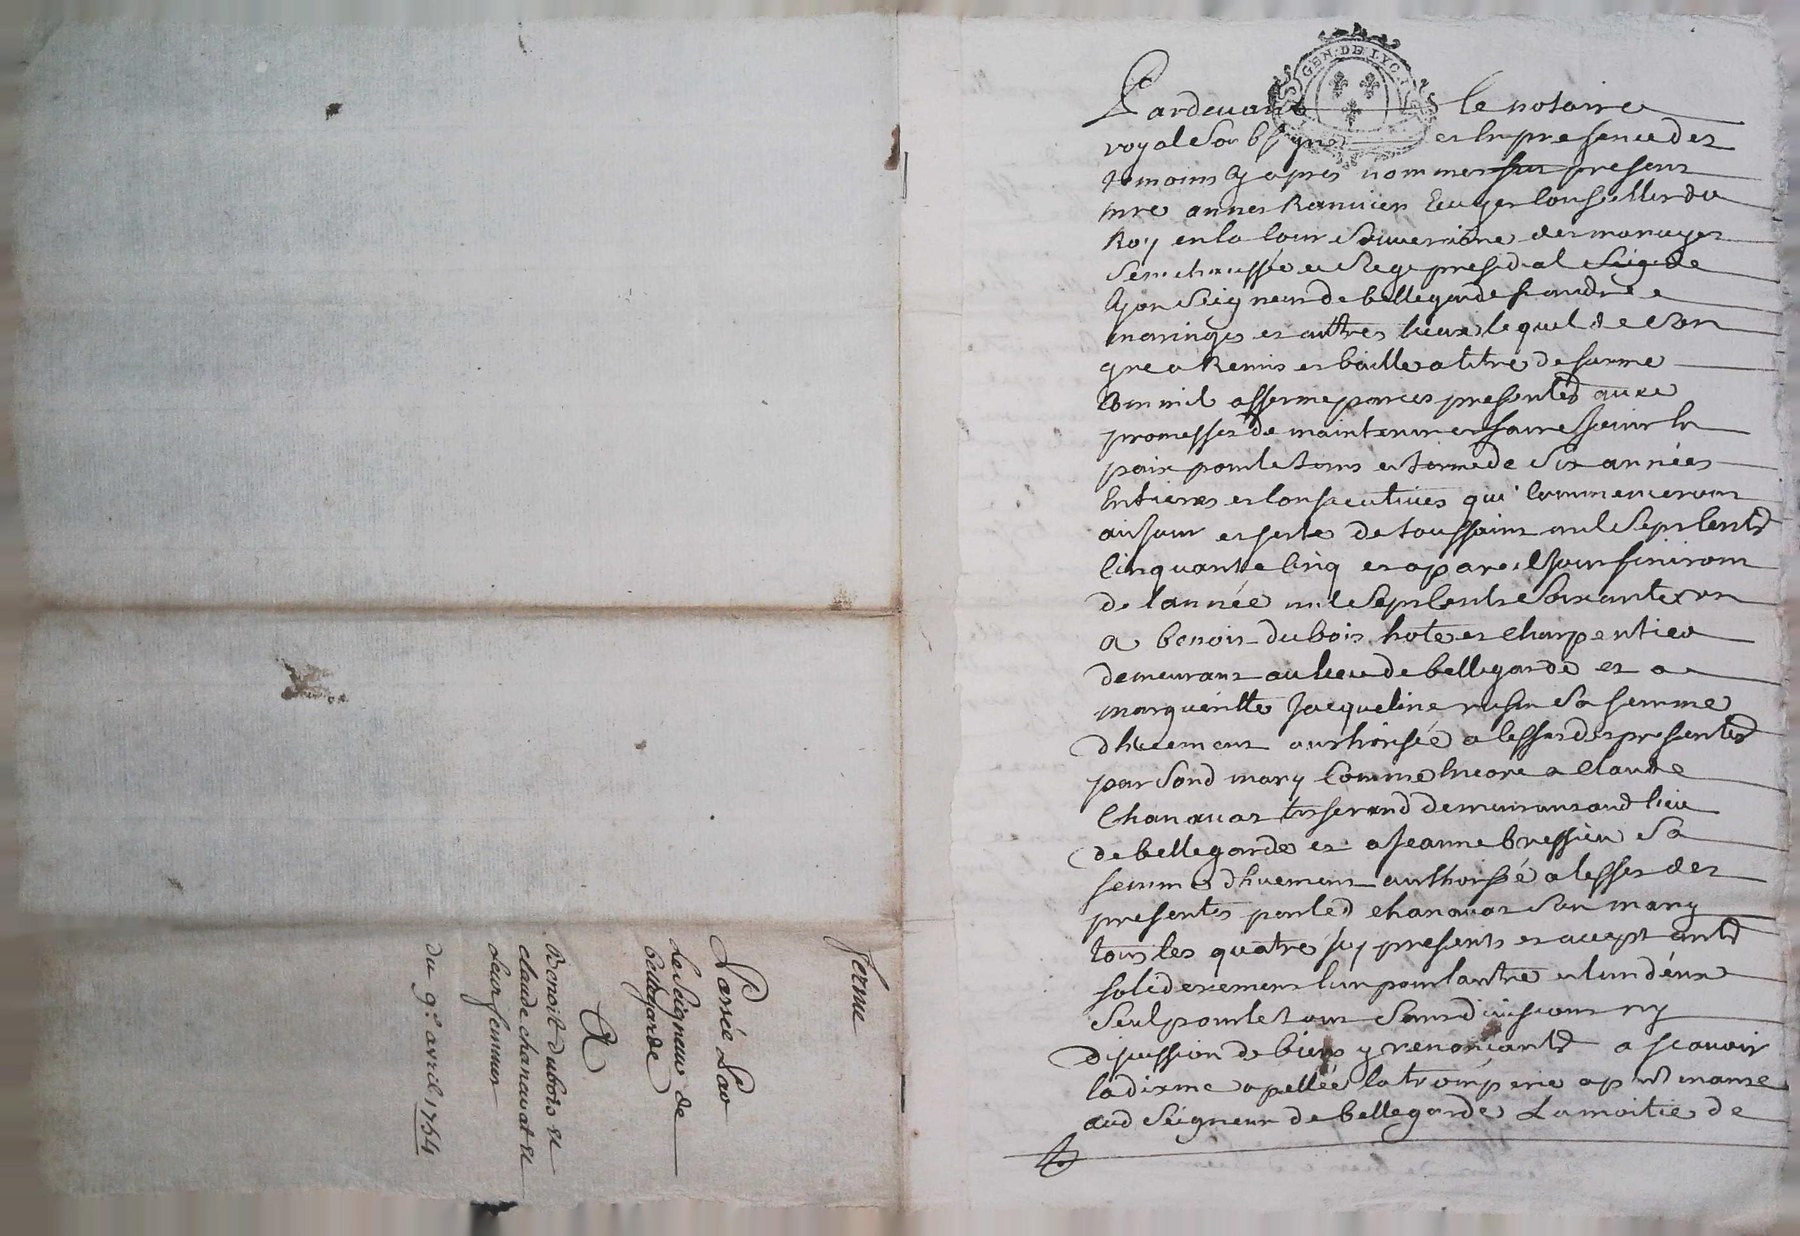 GEN. DE LYO
Pardevant le notaire
royal Soubsigné et en presence des
temoins cy apres nommes fut present
mre annes Ranvier Ecuyer Conseiller du
Roy en la Cour Souveraine des monoyes
Senechaussée et Siege presidial de
Lyon Seigneur de bellegarde
maringes et auttres lieux lequel de son
gre a Remis et baille a titre de ferme
Comme il afferme par ces presentes avec
promesses de maintenir et faire jouir en
paix pour le tems et terme de Six années
Entieres et Consecutives qui Commenceront
au jour et feste de toussaint mil Sept Cents
Cinquante Cinq et a pareil jour finiront
de l'année mil Sept Cents Soixante et un
a benoit dubois hote et charpentier
demeurant au lieu de bellegarde et a
margueritte Jacqueline sa femme
dhuement authorisée a l'effet des presentes
par Sond mary Comme Encore a Claude
Chanavat tisserand demeurant aud lieu
de bellegarde et a Jeanne bressieu Sa
femme dhuement authorisé a l'effet des
presentes par led Chanavat Son mary
tous les quatre icy presents et acceptants
soliderement l'un pour l'autre et l'un d'eux
Seul pour le tout Sans division ny
discussion de biens y renonçants a scavoir
la dixme apellée la tromperie apartenante
aud Seigneur de bellegarde La moitié de
ferme
Passée Par
Le Seigneur de
bellegarde
A
Benoit dubois et
claude chanavat et
Leur femmes
du 9e avril 1754